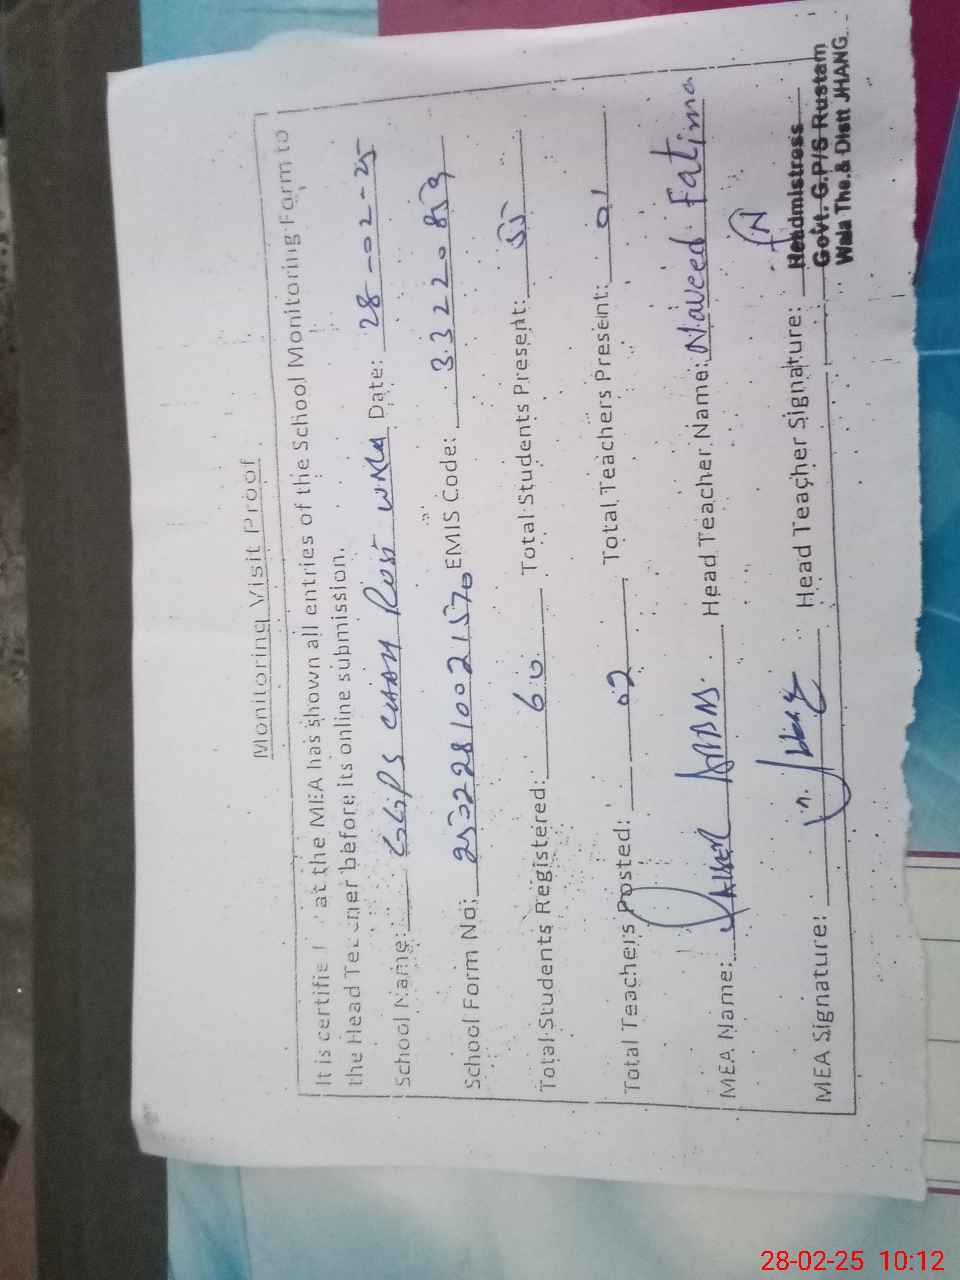 Monitoring Visit Proof
It is certifie at the MEA has shown all entries of the School Monitoring Form to
the Head Teacher before its online submission.
School Name: GGPS CHAH Date: 28-02-25
School Form No: EMIS Code: 33220859
Total Students Registered: 60 Total Students Present: 55
Total Teachers Posted: 02 Total Teachers Present: 01
MEA Name: Head Teacher Name: Naveed Fatima
MEA Signature: Head Teacher Signature: FN
Headmistress
Govt. G.P/S Rustam
Wala The.& Distt JHANG
28-02-25 10:12